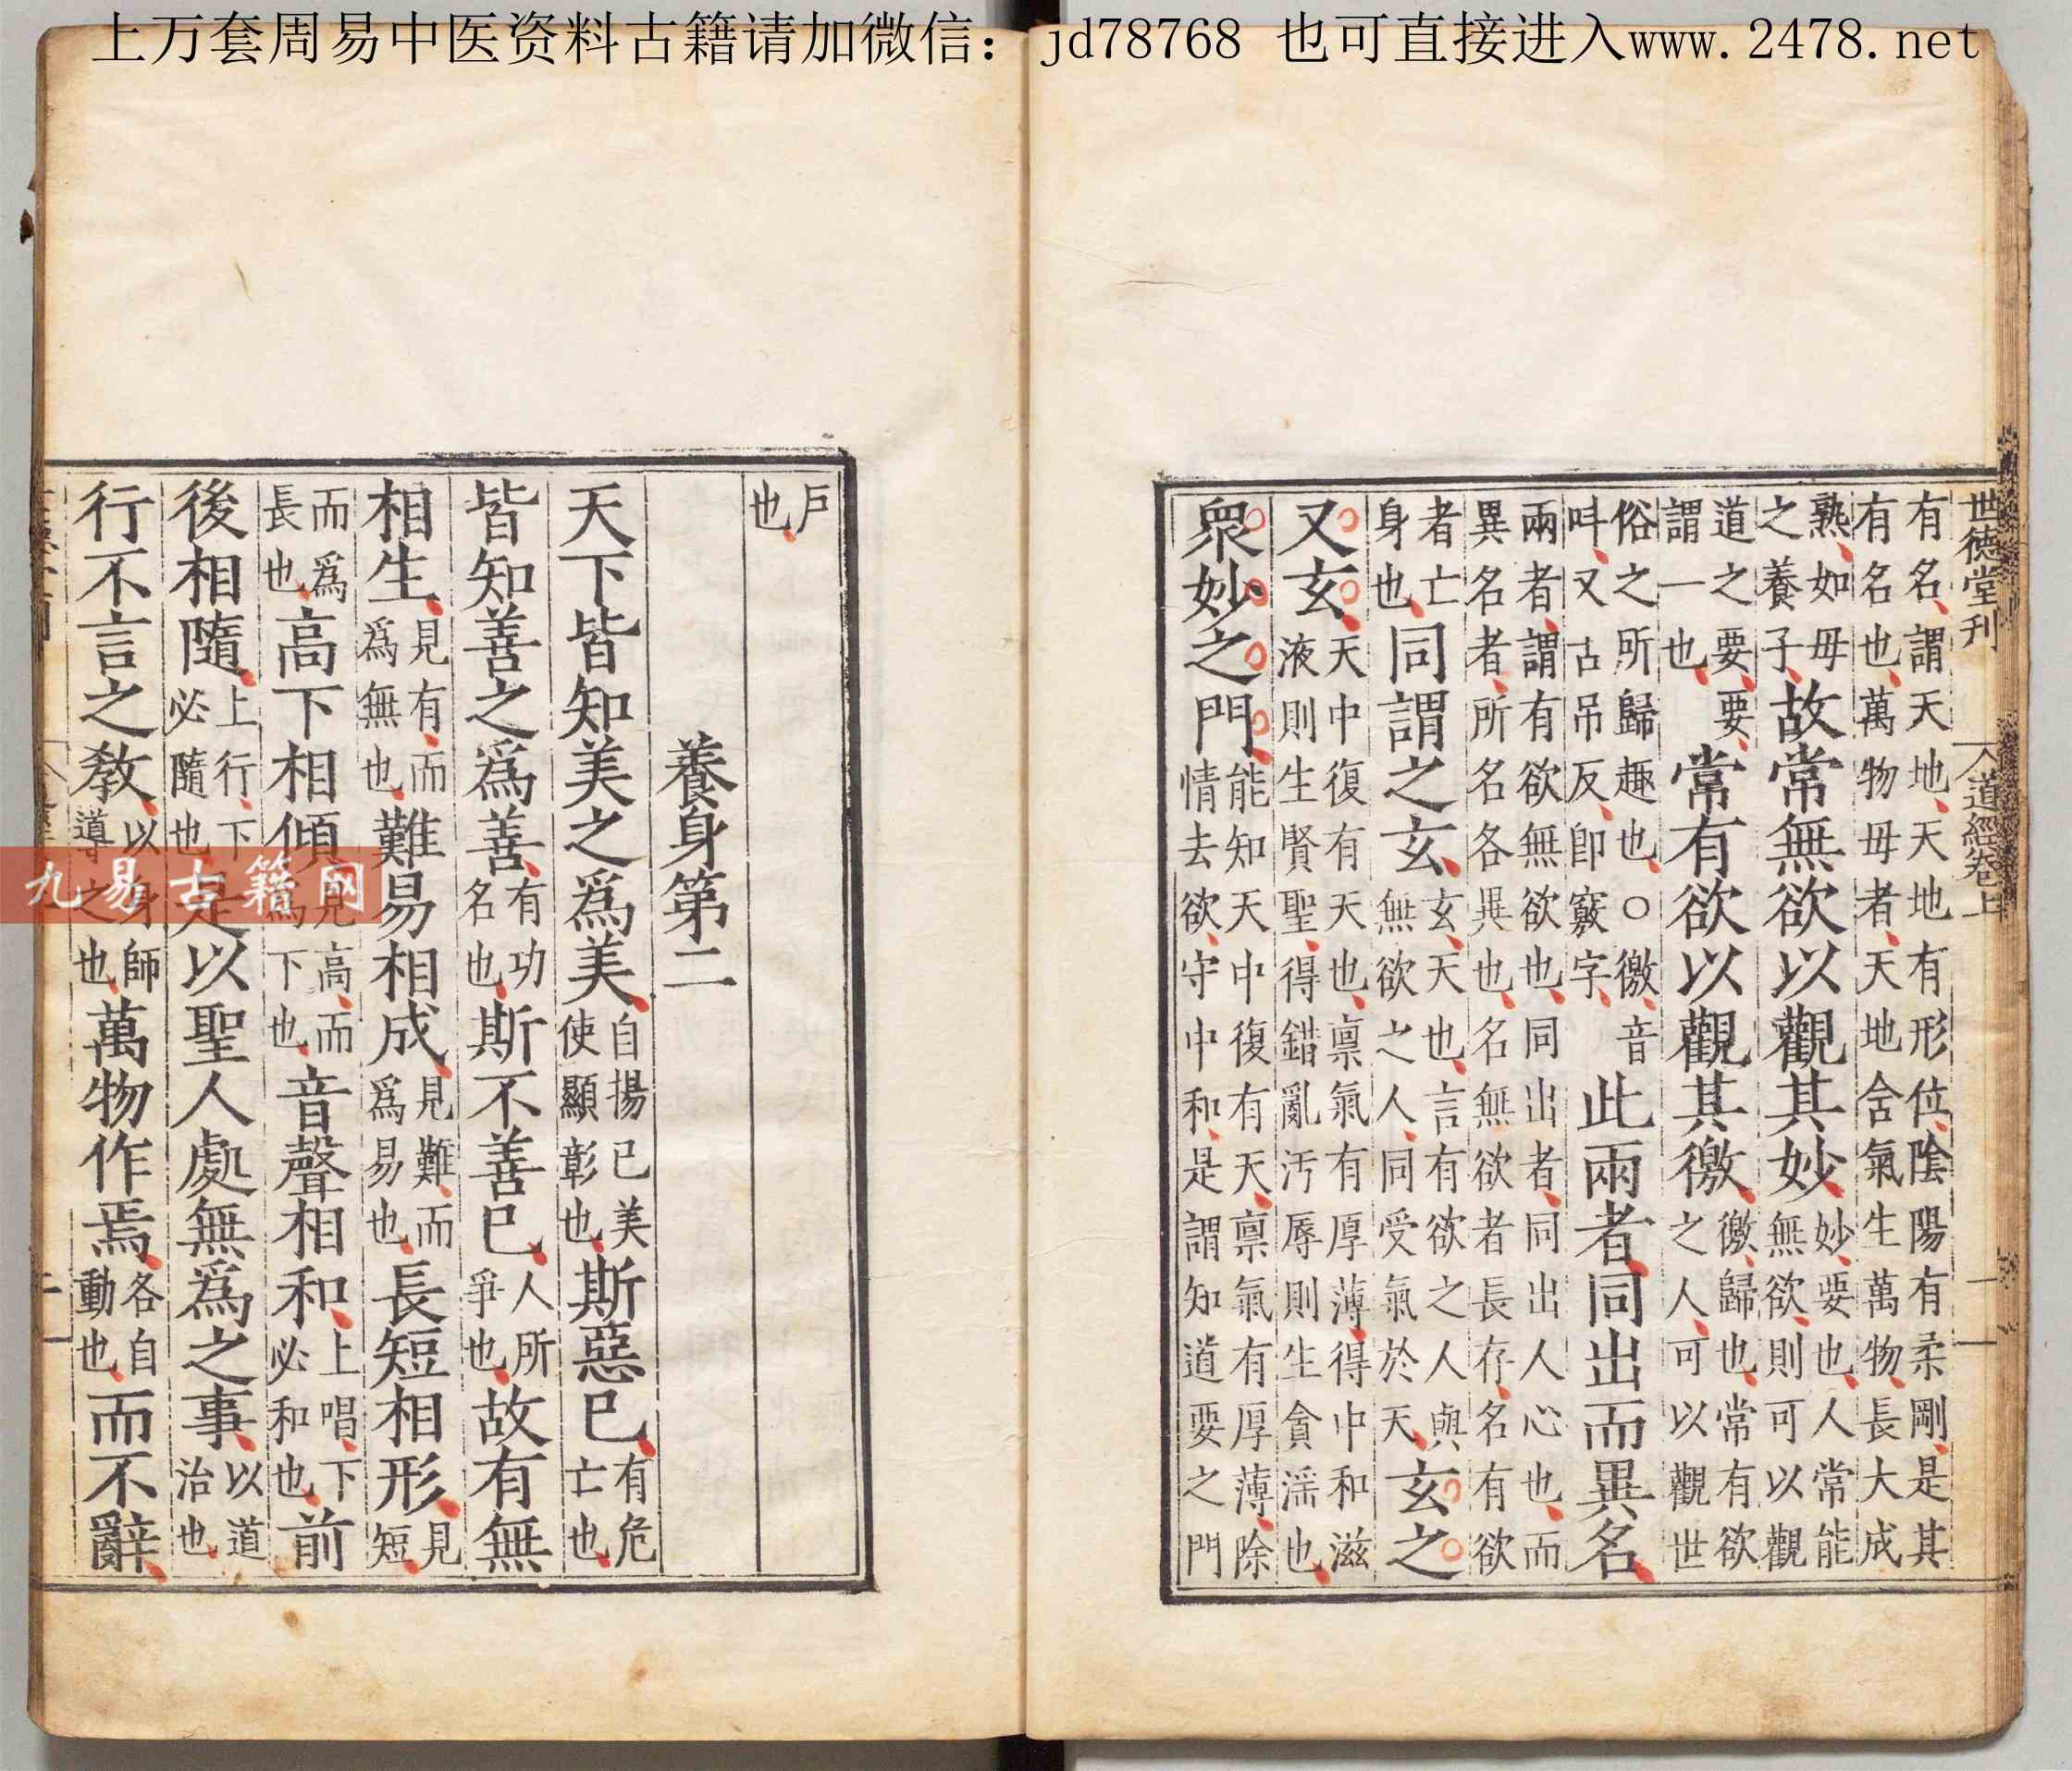 上万套周易中医资料古籍请加微信：jd78768 也可直接进入www.2478.net
世德堂刊 道經卷上 一
有名謂天地天地有形位陰陽有柔剛是其有名也萬物母者天地含氣生萬物長大成
熟如母之養子故常無欲以觀其妙妙要也人常能無欲則可以觀
道之要要謂一也常有欲以觀其徼徼歸也常有欲之人可以觀世
俗之所歸趣也○徼音呌又古吊反卽竅字此兩者同出而異名
兩者謂有欲無欲也同出者同出人心也而異名者所名各異也名無欲者長存名有欲
者亡身也同謂之玄玄天也言有欲之人與無欲之人同受氣於天玄之
又玄天中復有天也禀氣有厚薄得中和滋液則生賢聖得錯亂汚辱則生貪淫也
衆妙之門能知天中復有天禀氣有厚薄除情去欲守中和是謂知道要之門
戶也
養身第二
天下皆知美之爲美自揚己美使顯彰也斯惡已有危亡也
皆知善之爲善有功名也斯不善已人所爭也故有無
相生見有而爲無也難易相成見難而爲易也長短相形見短
而爲長也高下相傾見高而爲下也音聲相和上唱下必和也前
後相隨上行下必隨也是以聖人處無爲之事以道治也
行不言之教以身師導之也萬物作焉各自動也而不辭
九易古籍网